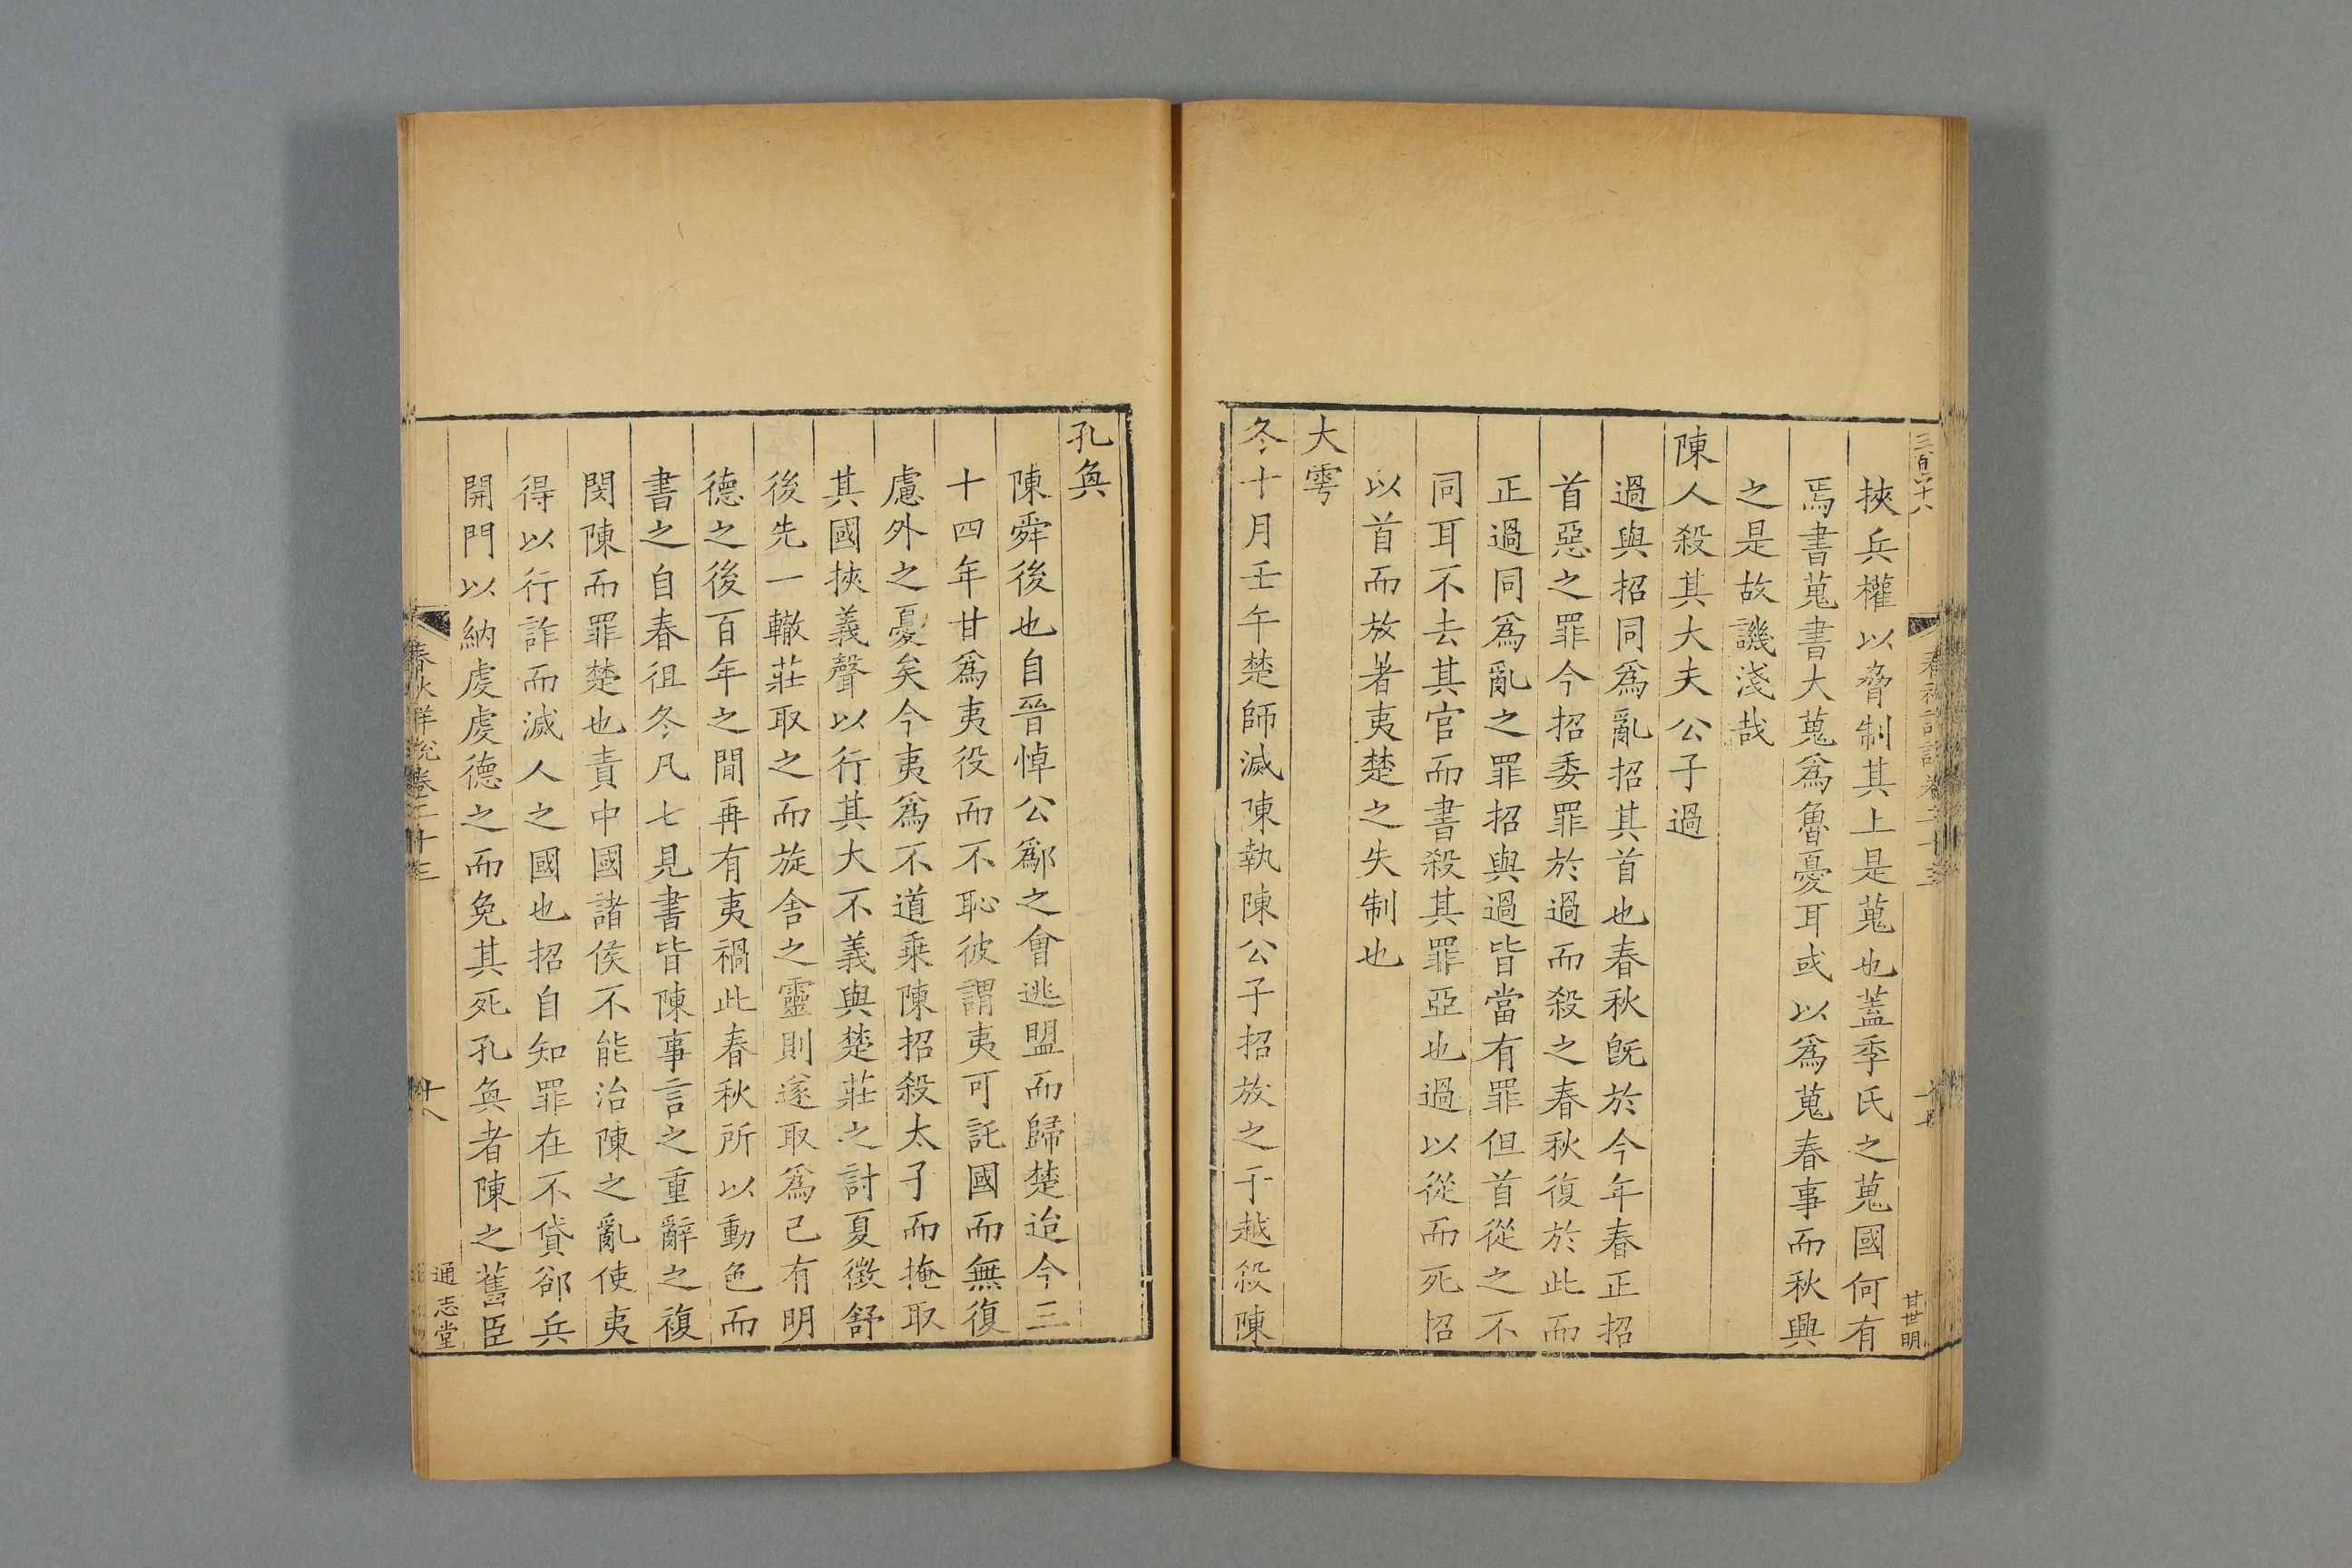 三百六十八
春秋詳說卷二十三
十七
甘世明
挾兵權以脅制其上是蒐也蓋季氏之蒐國何有
焉書蒐書大蒐爲魯憂耳或以爲蒐春事而秋興
之是故譏淺哉
陳人殺其大夫公子過
過與招同爲亂招其首也春秋旣於今年春正招
首惡之罪今招委罪於過而殺之春秋復於此而
正過同爲亂之罪招與過皆當有罪但首從之不
同耳不去其官而書殺其罪亞也過以從而死招
以首而放著夷楚之失制也
大雩
冬十月壬午楚師滅陳執陳公子招放之于越殺陳
孔奐
陳舜後也自晉悼公鄬之會逃盟而歸楚迨今三
十四年甘爲夷役而不恥彼謂夷可託國而無復
慮外之憂矣今夷爲不道乘陳招殺太子而掩取
其國挾義聲以行其大不義與楚莊之討夏徵舒
後先一轍莊取之而旋舍之靈則遂取爲己有明
德之後百年之閒再有夷禍此春秋所以動色而
書之自春徂冬凡七見書皆陳事言之重辭之複
閔陳而罪楚也責中國諸侯不能治陳之亂使夷
得以行詐而滅人之國也招自知罪在不貸郤兵
開門以納虔虔德之而免其死孔奐者陳之舊臣
春秋詳說卷二十三
十八
通志堂